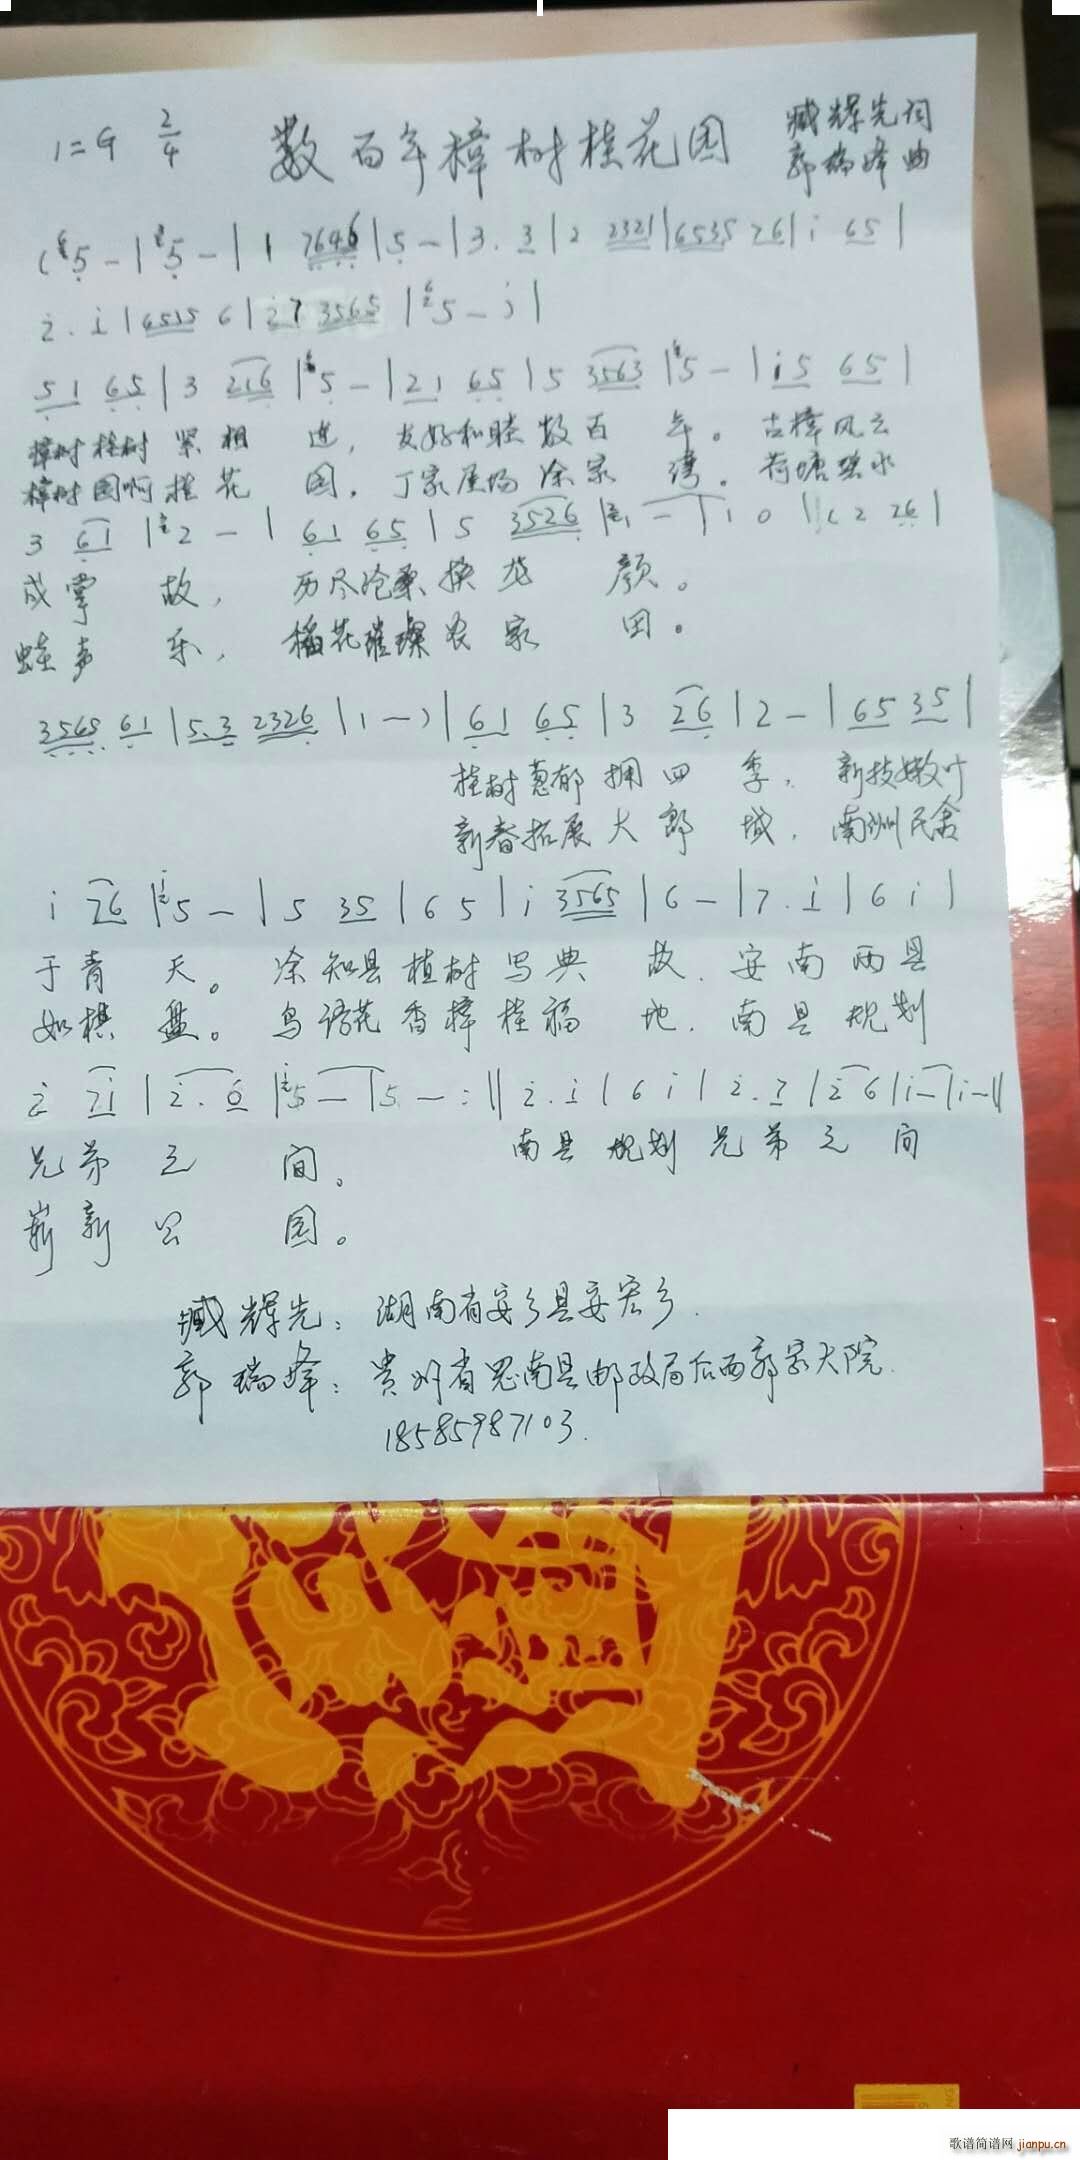 1=G 2/4 数百年樟树桂花园 臧辉先词
郭瑞峰曲
(5 - | 5 - | 1 7646 | 5 - | 3. 3 | 2 2321 | 6535 26 | i 65 |
2. i | 6535 6 | i7 3565 | 5 - ) |
51 65 | 3 216 | 5 - | 21 65 | 5 3563 | 5 - | i5 65 |
樟树桂树紧相 连，友好和睦数百 年。古樟风云
樟树园啊桂花 园，丁家屋场涂家 湾。荷塘碧水
3 61 | 2 - | 61 65 | 5 3526 | 1 - | 1 0 || (2 26 |
成掌 故，历尽沧桑换龙 颜。
蛙声 乐，稻花璀璨农家 田。
3565 61 | 5.3 2326 | 1 - ) | 61 65 | 3 26 | 2 - | 65 35 |
桂树葱郁拥四 季，新技嫩叶
新春拓展大郎 城，南洲民舍
i 76 | 5 - | 5 35 | 6 5 | i 3565 | 6 - | 7. i | 6 i |
于青 天。涂知县植树写典 故，安南两县
如棋 盘。鸟语花香樟桂福 地，南县规划
2 7i | 2. 6 | 5 - | 5 - :|| 2. i | 6 i | 2. 7 | 2 6 | i - | i - ||
兄弟之 间。 南县规划兄弟之间
崭新公 园。
臧辉先：湖南省安乡县安宏乡.
郭瑞峰：贵州省思南县邮政局后面郭家大院.
18585987103.
歌谱简谱网 jianpu.cn